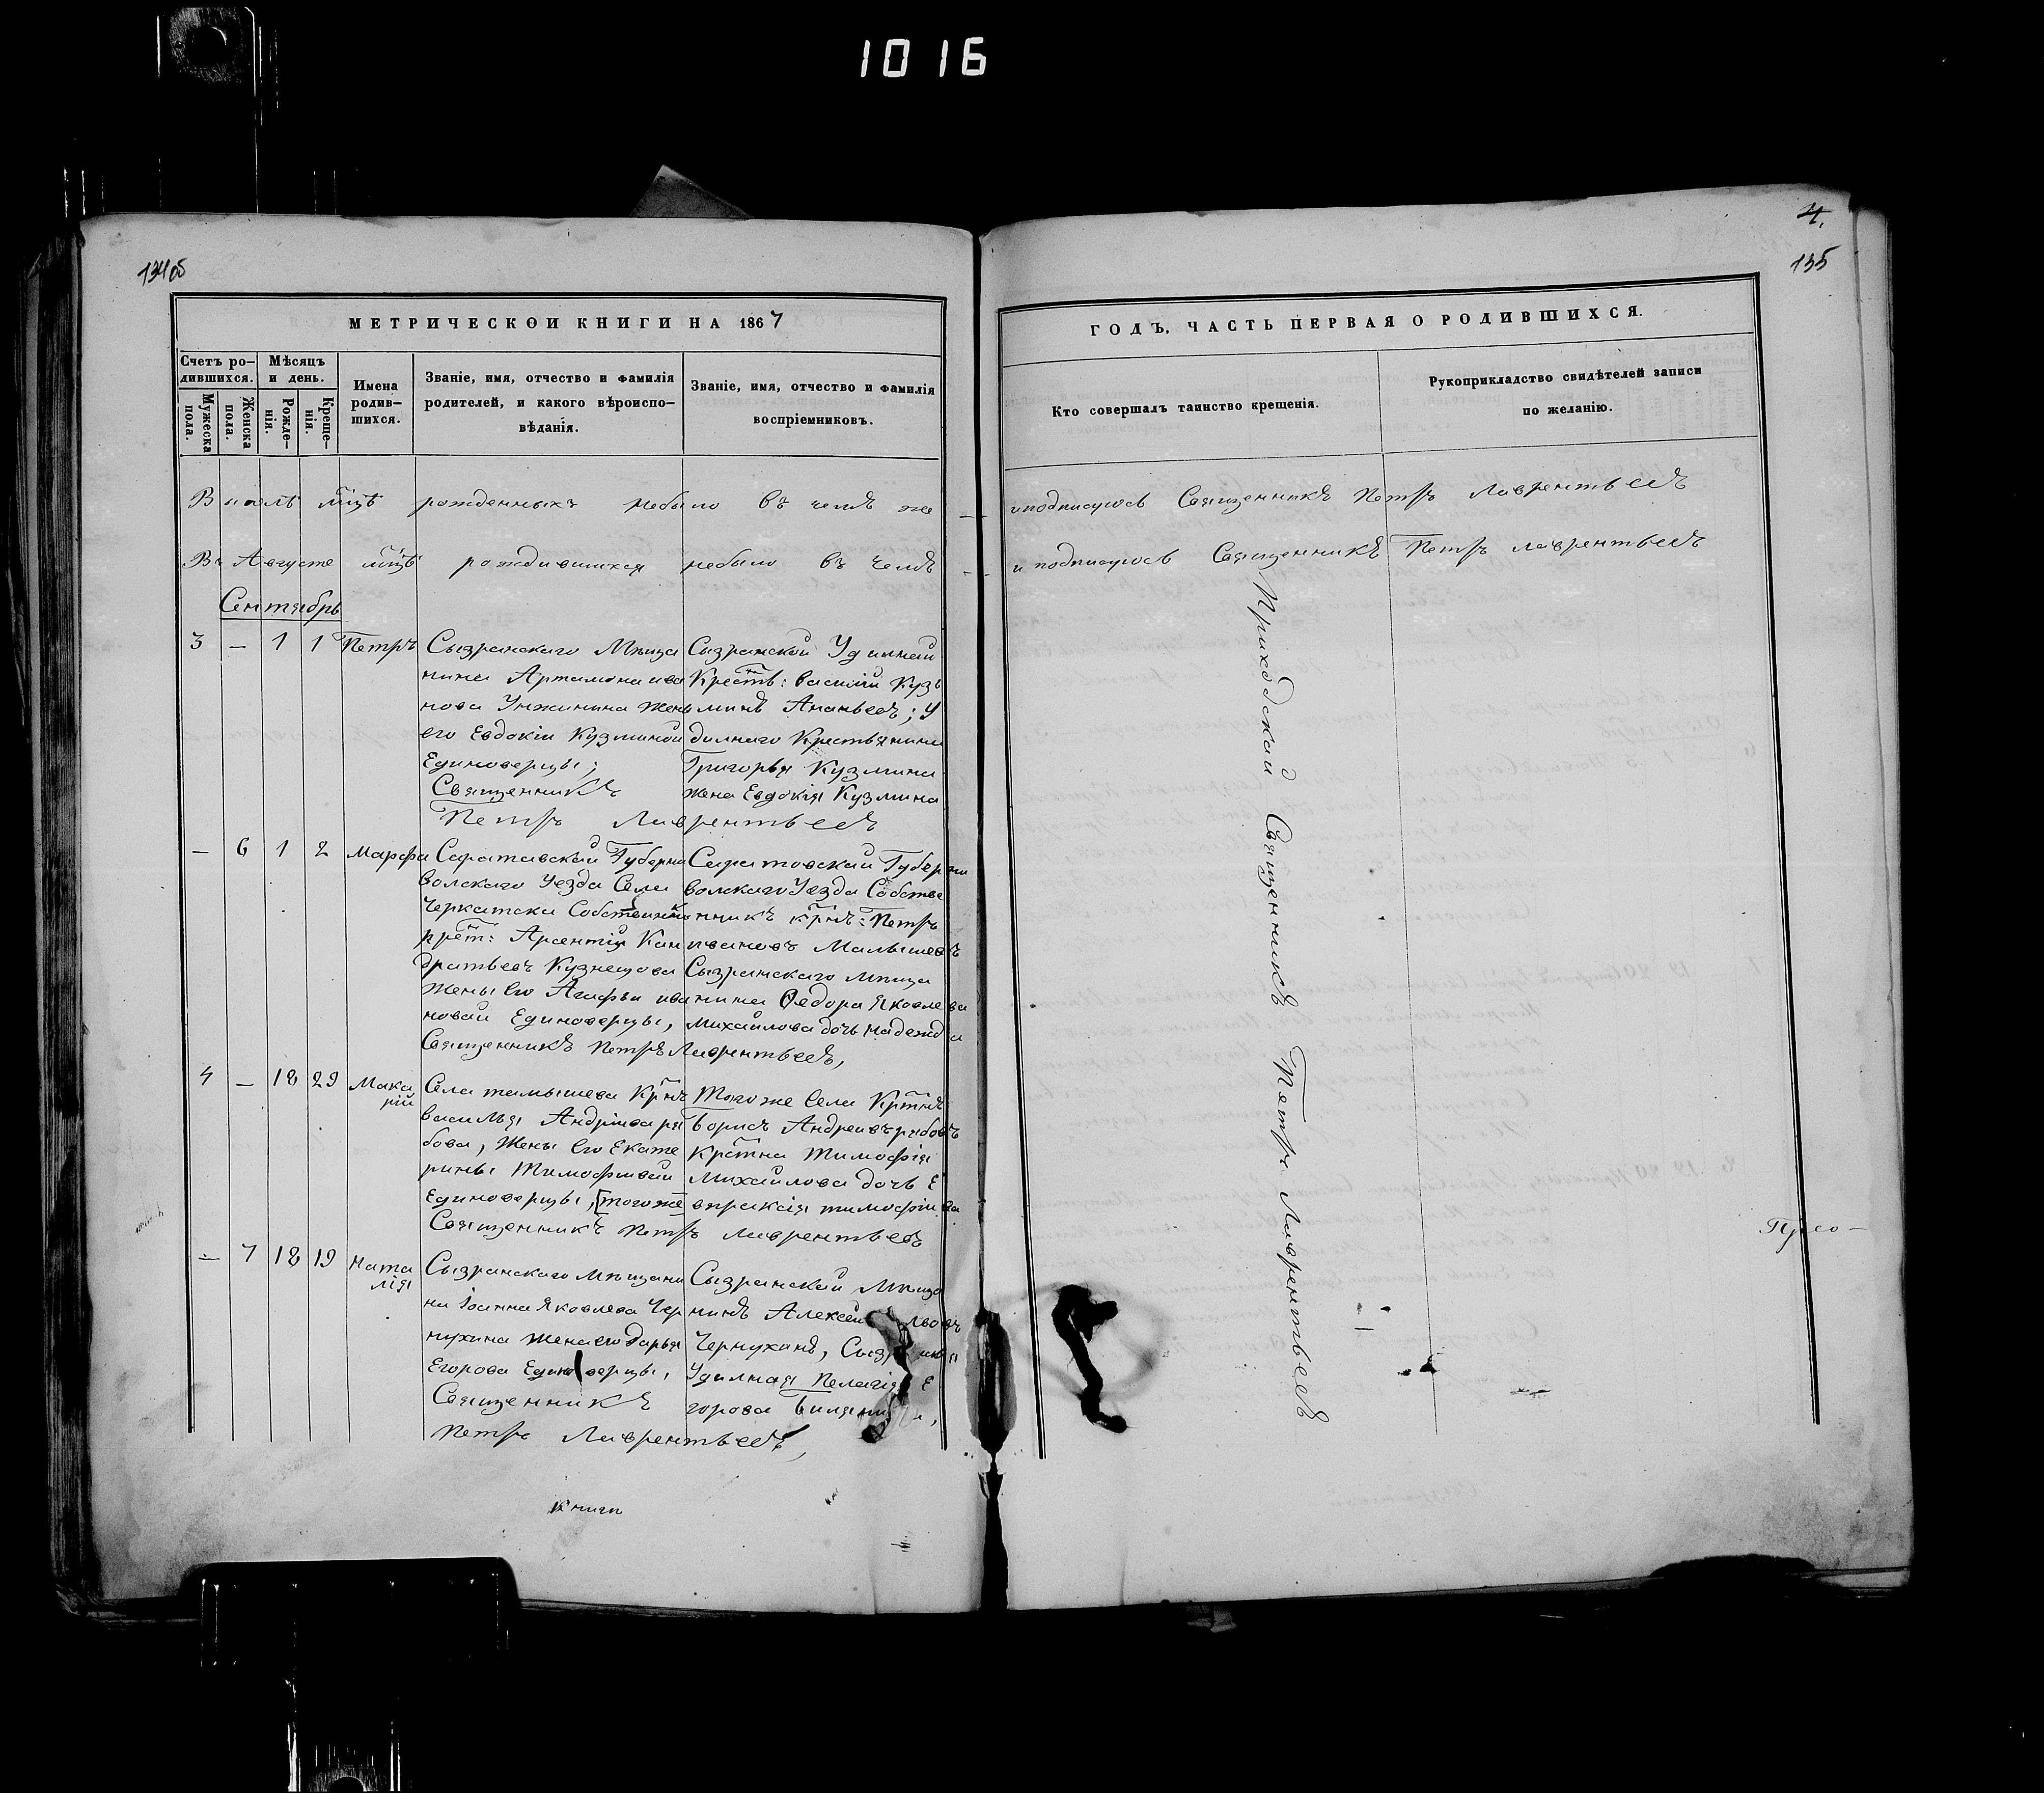 1016
134об
4.
135
МЕТРИЧЕСКОЙ КНИГИ НА 1867
ГОДЪ, ЧАСТЬ ПЕРВАЯ О РОДИВШИХСЯ.
Счетъ ро-
дившихся.
Мужеска
пола.
Женска
пола.
Мѣсяцъ
и день.
Рожде-
нія.
Креще-
нія.
Имена
родив-
шихся.
Званіе, имя, отчество и фамилія
родителей, и какого вѣроиспо-
вѣданія.
Званіе, имя, отчество и фамилія
воспріемниковъ.
Кто совершалъ таинство крещенія.
Рукоприкладство свидѣтелей записи
по желанію.
В июлѣ мцѣ рожденныхъ небыло въ чемъ же — и подписуюсь Священникъ Петръ Лаврентьевъ
Въ Августе мцѣ рождившихся небыло въ чемъ — и подписуюсь Священникъ Петръ Лаврентьевъ
Сентябрь
3 — 1 1 Петръ
Сызранскаго Мѣща
нина Артамона ива
нова Унжинина жены
его Евдокіи Кузминой
Единоверцы;
Священникъ
Петръ Лаврентьевъ
Сызранской Уделной
Крестн: Василий Кузь
минъ Ананьевъ; У
делнаго Крестьянина
Григорья Кузмина
жена Евдокія Кузмина
— 6 1 2 Марфа
Саратавской Губерни
Волскаго Уезда Села
Черкатска Собственика
крет: Арсентія Кан
дратьевъ Кузнецова
Жены его Агафьи ива
новой Единоверцы,
Священникъ Петръ Лаврентьевъ,
Саратовской Губерни
Волскаго Уезда Собстве
нникъ крнъ: Петръ
ивановъ Малышевъ
Сызранскаго мѣща
нина Федора Яковлева
Михайлова дочь надежда
4 — 18 29 Мака
рій
Села темышева Крнъ
василья Андріива ря
бова, Жены его Екате
рины Тимофивой
Единоверцы, [тогоже
Священникъ Петръ Лаврентьевъ
Тогоже Села Кртнъ
Борисъ Андреевъ рябовъ
Кртна Тимофія
Михайлова дочь Е
впраксія тимофіева
— 7 18 19 ната
лія
Сызранскаго мѣщани
на Іоанна Яковлева Чер
нухина жена его Дарья
Егорова Единоверцы,
Священникъ
Петръ Лаврентьевъ,
Сызранской Мѣща
нинъ Алексей
Чернухинъ,
Уделная Пелагія Е
горова
Приходский Священникъ Петръ Лаврентьевъ
книги